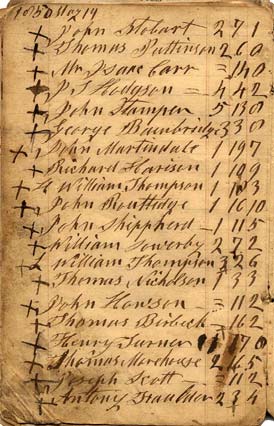 1850 May 14
x John Stobart 2 7 1
x Thomas Pattinson 2 6 0
x Mr Isaac Carr = 14 0
x P J Hodgson = 4 4 2
x John Stamper 5 13 0
x George Bambridge 3 3 0
x John Martindale 1 19 7
x Richard Harison 1 9 9
x William Thompson 1
x John Routledge 1 16 10
x John Shippherd 1 11 5
x William Sowerby 2 7 2
x William Thompson 3 2 6
x Thomas Nicholson 1 3 3
x John Howson = 11 2
x Thomas Birbeck = 16 2
x Henry Turner 17 0
x Thomas Morehouse 2 6 5
x Joseph Scott = 11 2
x Antony 2 3 4